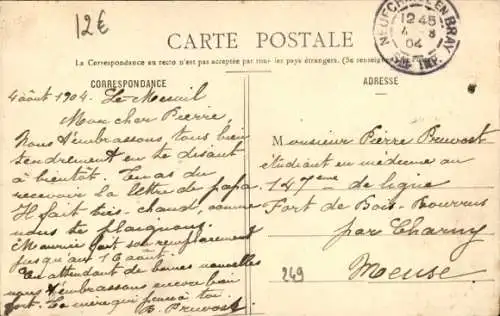 12€
NEUFCHATEL EN BRAY
12 45
4 8
04
CARTE POSTALE
La Correspondance au recto n'est pas acceptée par tous les pays étrangers. (Se renseigner
CORRESPONDANCE
ADRESSE
4 août 1904. Le Mesnil
Mon cher Pierre,
Nous t'embrassons tous bien
tendrement en te disant
à bientôt. Tu as du
recevoir la lettre de papa.
Il fait très-chaud, comme
nous te plaignons.
Maurice fait son remplacement
jusqu'au 16 août.
En attendant de bonnes nouvelles
nous t'embrassons encore bien
fort. Ta mère qui pense à toi.
B. Pruvost
Monsieur Pierre Pruvost
étudiant en médecine au
147eme de ligne
Fort de Bois-Bourrus
par Charny
Meuse
249